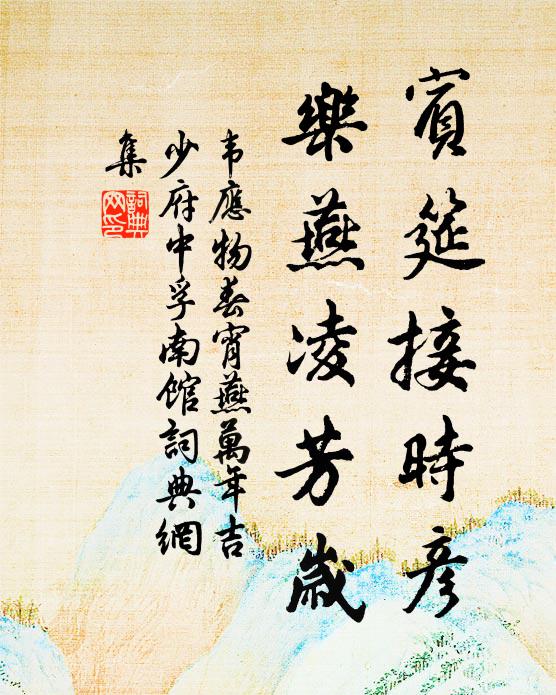 賓筵接時彥
樂燕凌芳歲
韦應物春宵燕萬年吉
少府中孚南館詞典網
集
詞典网印